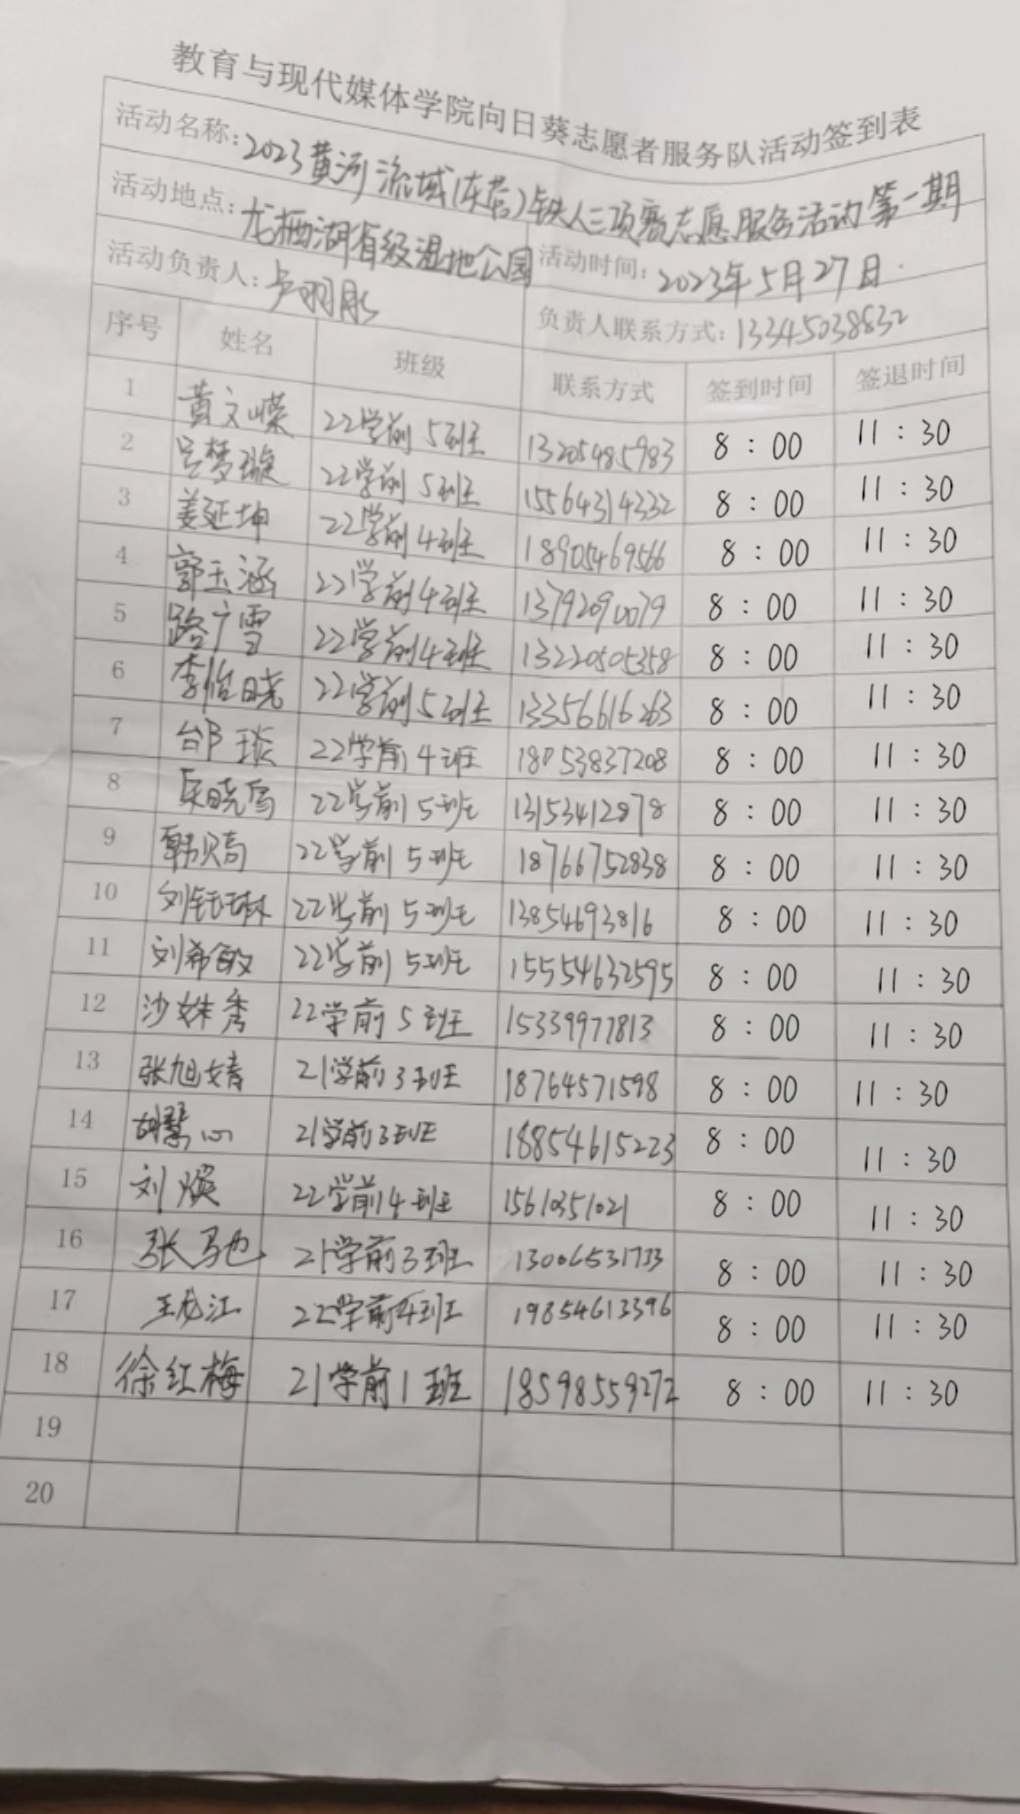 教育与现代媒体学院向日葵志愿者服务队活动签到表
活动名称：2023黄河流域(东营)铁人三项赛志愿服务活动第一期
活动地点：龙栖湖省级湿地公园 活动时间：2023年5月27日.
活动负责人：卢羽 负责人联系方式：13345038832
序号 姓名 班级 联系方式 签到时间 签退时间
1 黄文嵘 22学前5班 13205485983 8:00 11:30
2 吴梦璇 22学前5班 15564314332 8:00 11:30
3 姜延坤 22学前4班 18905469566 8:00 11:30
4 郭玉涵 22学前4班 13792090079 8:00 11:30
5 路广雪 22学前4班 13220505358 8:00 11:30
6 李怡晓 22学前5班 13356616263 8:00 11:30
7 邰琰 22学前4班 18053837208 8:00 11:30
8 吴晓雪 22学前5班 13153412878 8:00 11:30
9 韩贝高 22学前5班 18766752838 8:00 11:30
10 刘钰琳 22学前5班 13854693816 8:00 11:30
11 刘希敏 22学前5班 15554632595 8:00 11:30
12 沙姝秀 22学前5班 15339977813 8:00 11:30
13 张旭婧 21学前3班 18764571598 8:00 11:30
14 胡慧心 21学前3班 18854615223 8:00 11:30
15 刘瑛 22学前4班 15610351021 8:00 11:30
16 张驰 21学前3班 13006531733 8:00 11:30
17 王龙江 22学前4班 19854613396 8:00 11:30
18 徐红梅 21学前1班 18598559272 8:00 11:30
19
20